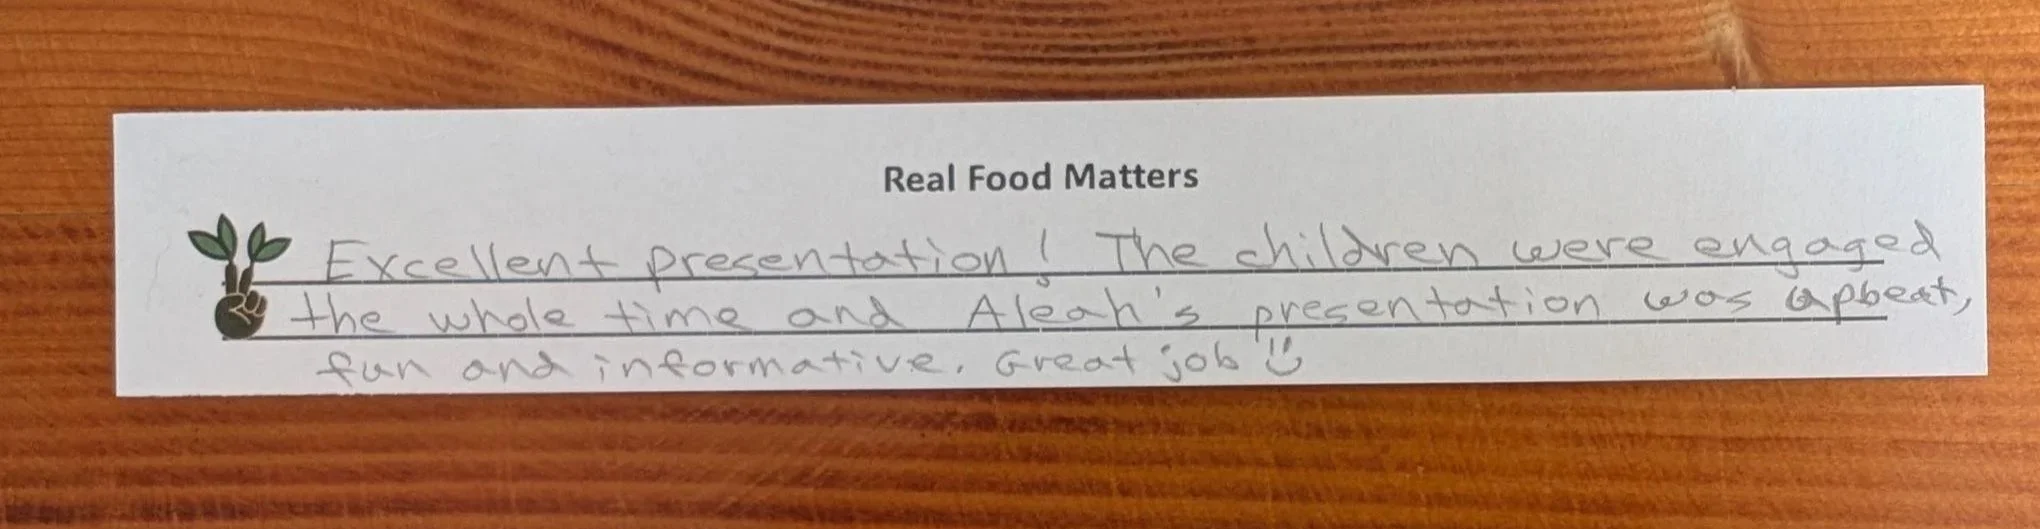 Real Food Matters
Excellent presentation! The children were engaged
the whole time and Aleah's presentation was upbeat,
fun and informative. Great job